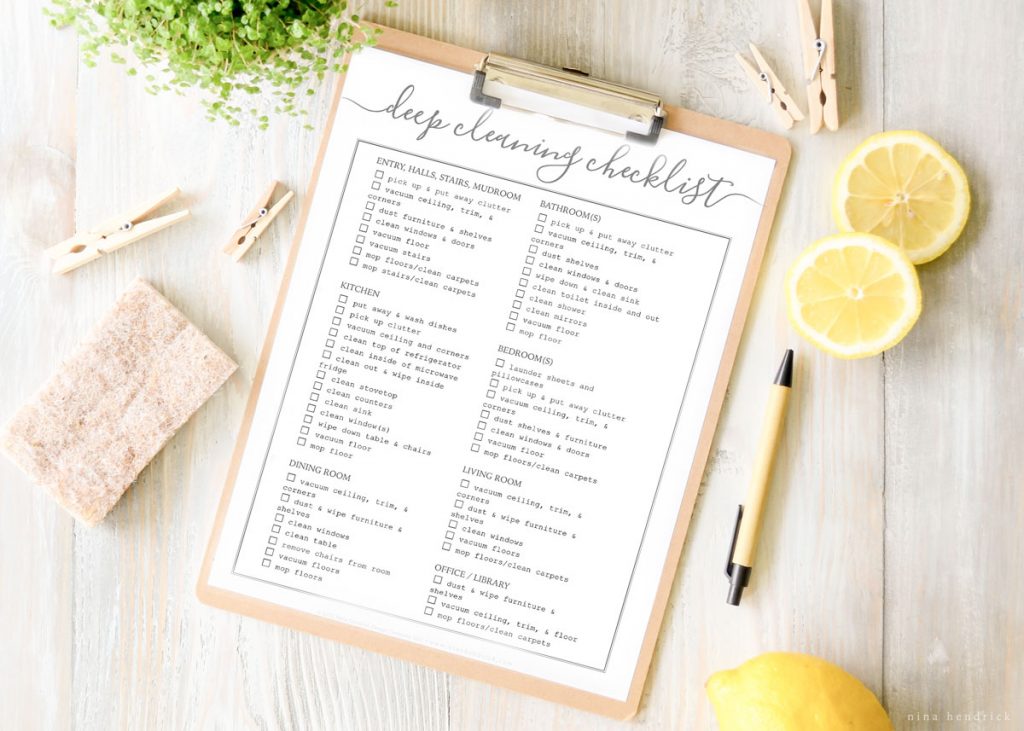 deep cleaning checklist
ENTRY, HALLS, STAIRS, MUDROOM
pick up & put away clutter
vacuum ceiling, trim, &
corners
dust furniture & shelves
clean windows & doors
vacuum floor
vacuum stairs
mop floors/clean carpets
mop stairs/clean carpets
KITCHEN
put away & wash dishes
pick up clutter
vacuum ceiling and corners
clean top of refrigerator
clean inside of microwave
clean out & wipe inside
fridge
clean stovetop
clean counters
clean sink
clean window(s)
wipe down table & chairs
vacuum floor
mop floor
DINING ROOM
vacuum ceiling, trim, &
corners
dust & wipe furniture &
shelves
clean windows
clean table
remove chairs from room
vacuum floors
mop floors
BATHROOM(S)
pick up & put away clutter
vacuum ceiling, trim, &
corners
dust shelves
clean windows & doors
wipe down & clean sink
clean toilet inside and out
clean shower
clean mirrors
vacuum floor
mop floor
BEDROOM(S)
launder sheets and
pillowcases
pick up & put away clutter
vacuum ceiling, trim, &
corners
dust shelves & furniture
clean windows & doors
vacuum floor
mop floors/clean carpets
LIVING ROOM
vacuum ceiling, trim, &
corners
dust & wipe furniture &
shelves
clean windows
vacuum floors
mop floors/clean carpets
OFFICE / LIBRARY
dust & wipe furniture &
shelves
vacuum ceiling, trim, & floor
mop floors/clean carpets
nina hendrick